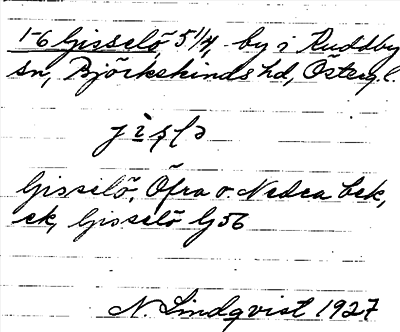 1-6 Gisselö 5 1/4, by i Ruddby
sn, Björkekinds hd, Österg l.
Gisselö, Öfra o. Nedra bek,
ek, Gisselö G 56
N. Lindqvist 1927